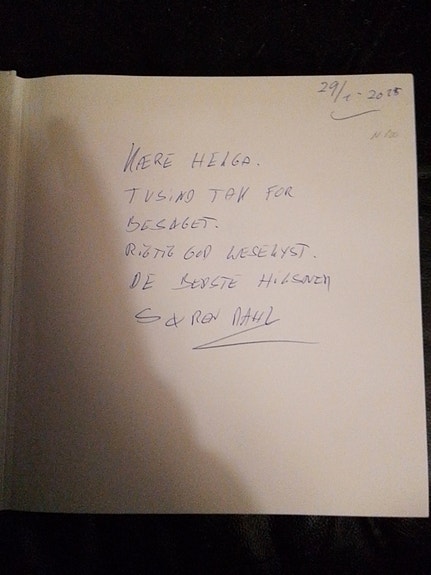 29/1-2015
KÆRE HELGA.
TUSIND TAK FOR
BESØGET.
RIGTIG GOD LÆSELYST.
DE BEDSTE HILSNER
SØREN DAHL